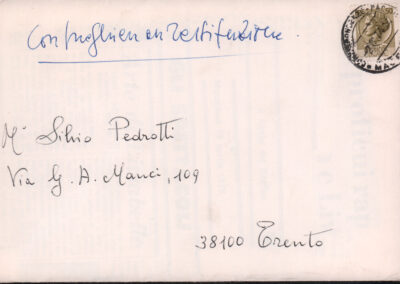 Con preghiera di restituzione.
M° Silvio Pedrotti
Via G. A. Manci, 109
38100 Trento